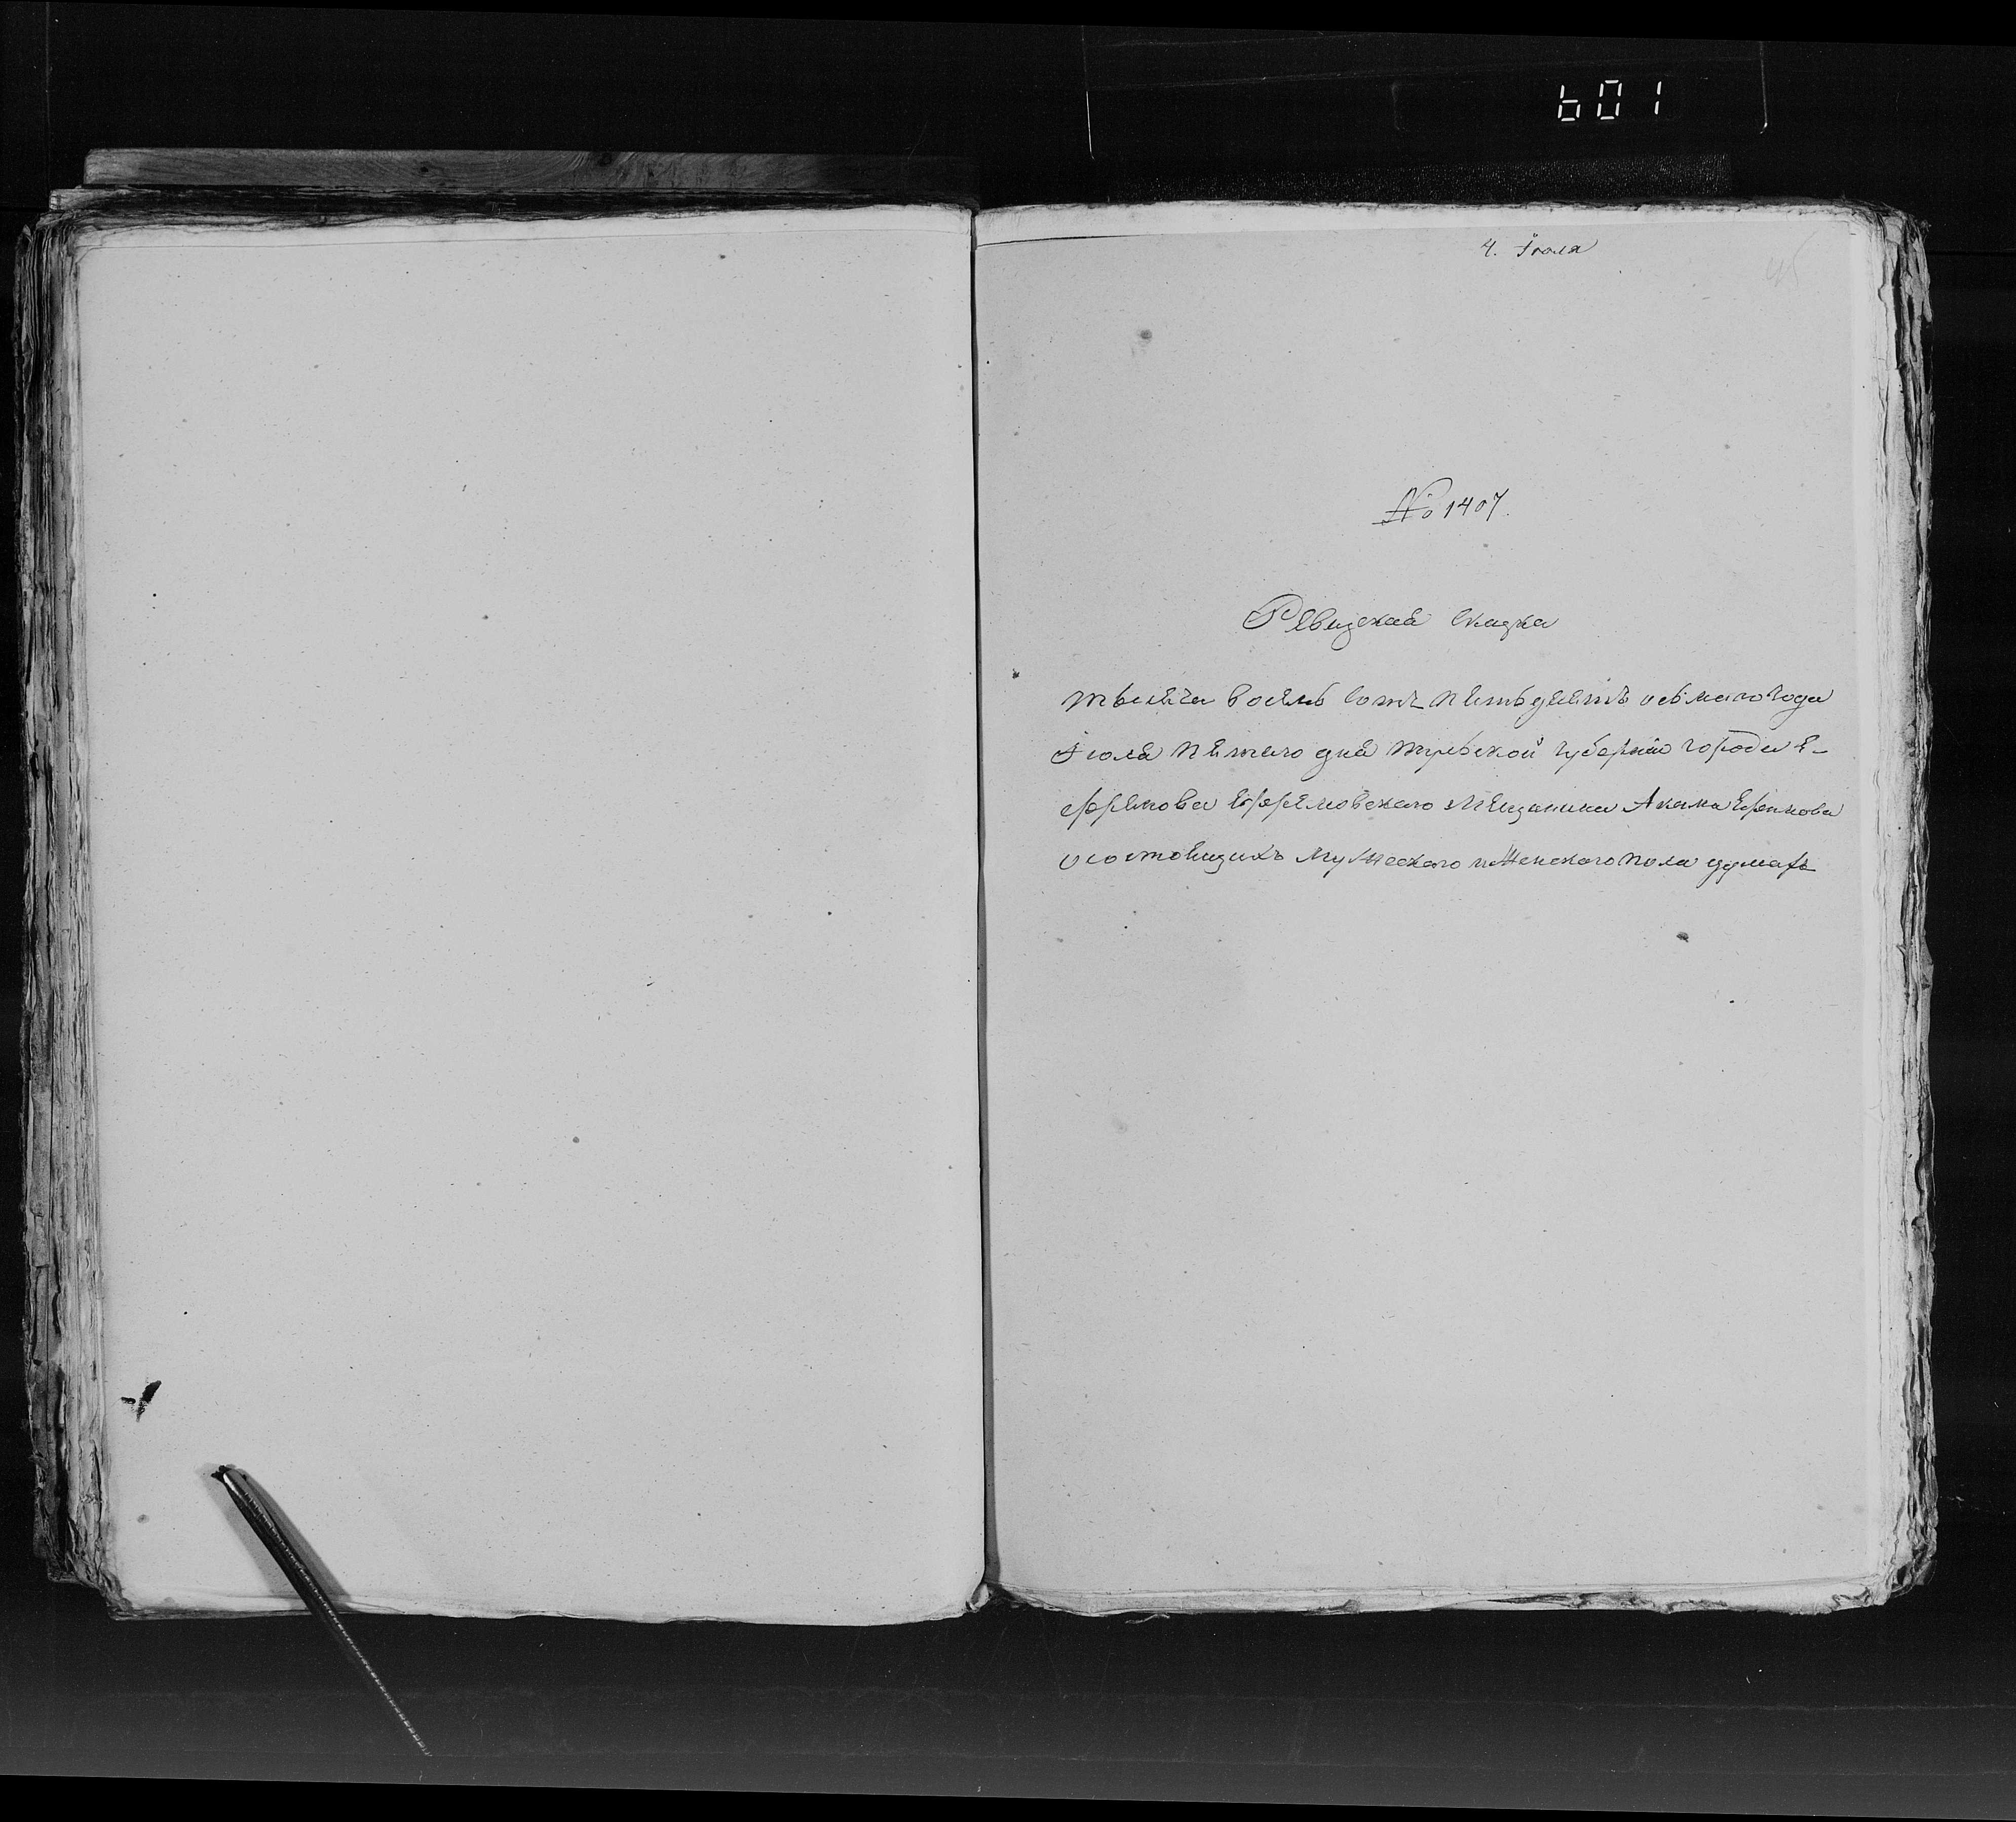 601
4. Іюля
45
№ 1407.
Ревизская сказка
тысеча восемь сотъ петьдесетъ осьмаго года
Июля петаго дня тульской губерніи города Е-
ффремова Еффремовскаго Мещанина Акима
о состоящихъ мужескаго и женскаго пола душахъ